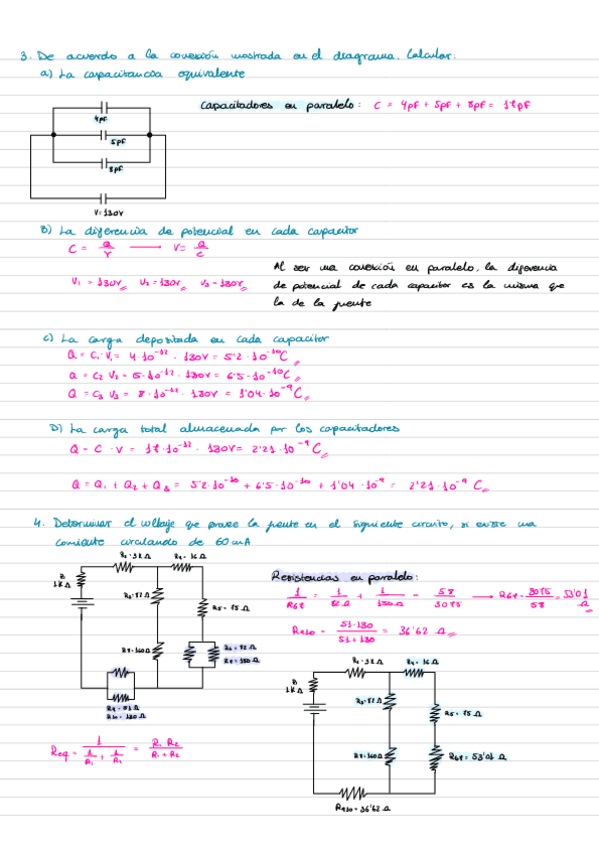 3. De acuerdo a la conexión mostrada en el diagrama. Calcular:
a) La capacitancia equivalente
Capacitadores en paralelo: C = 4pF + 5pF + 8pF = 17pF
4pF
5pF
8pF
V=130V
B) La diferencia de potencial en cada capacitor
C = Q/V → V = Q/C
V1 = 130V V2 = 130V V3 = 130V
Al ser una conexión en paralelo, la diferencia
de potencial de cada capacitor es la misma que
la de la fuente
c) La carga depositada en cada capacitor
Q = C1 · V1 = 4·10^-12 · 130V = 5'2·10^-10 C
Q = C2 V2 = 5·10^-12 · 130V = 6'5·10^-10 C
Q = C3 V3 = 8·10^-12 · 130V = 1'04·10^-9 C
D) La carga total almacenada por los capacitadores
Q = C · V = 17·10^-12 · 130V = 2'21·10^-9 C
Q = Q1 + Q2 + Q3 = 5'2·10^-10 + 6'5·10^-10 + 1'04·10^-9 = 2'21·10^-9 C
4. Determinar el voltaje que provee la fuente en el siguiente circuito, si existe una
corriente circulando de 60 mA
R2=3KΩ R4=16Ω
1KΩ
R3=82Ω
R5=75Ω
R7=160Ω
R6=82Ω
R8=150Ω
R9=51Ω
R10=130Ω
Resistencias en paralelo:
1/R68 = 1/82Ω + 1/150Ω = 58/3075 → R68 = 3075/58 = 53'01 Ω
R910 = 51·130/51+130 = 36'62 Ω
Req = 1/(1/R1 + 1/R2) = R1 R2/R1 + R2
R2=3KΩ R4=16Ω
1KΩ
R3=82Ω
R5=75Ω
R7=160Ω R68=53'01 Ω
R910=36'62 Ω